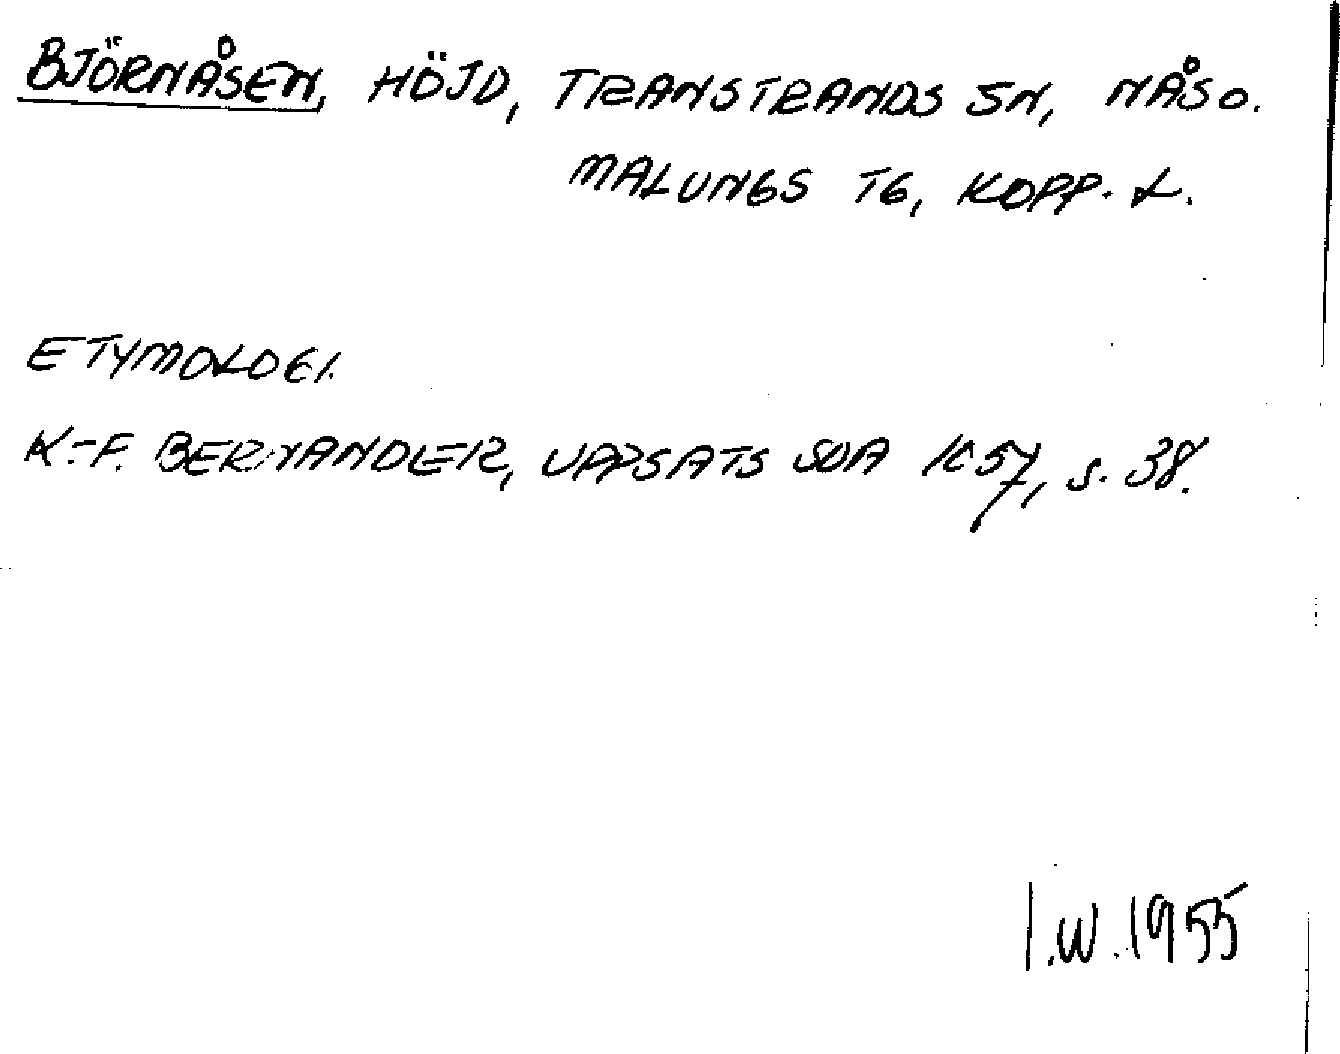 BJÖRNÅSEN, HÖJD, TRANSTRANDS SN, NÅS O.
MALUNGS TG, KOPP. L.
ETYMOLOGI.
K.-F. BERNANDER, UPPSATS SOA 1657, s. 38.
I.W. 1955